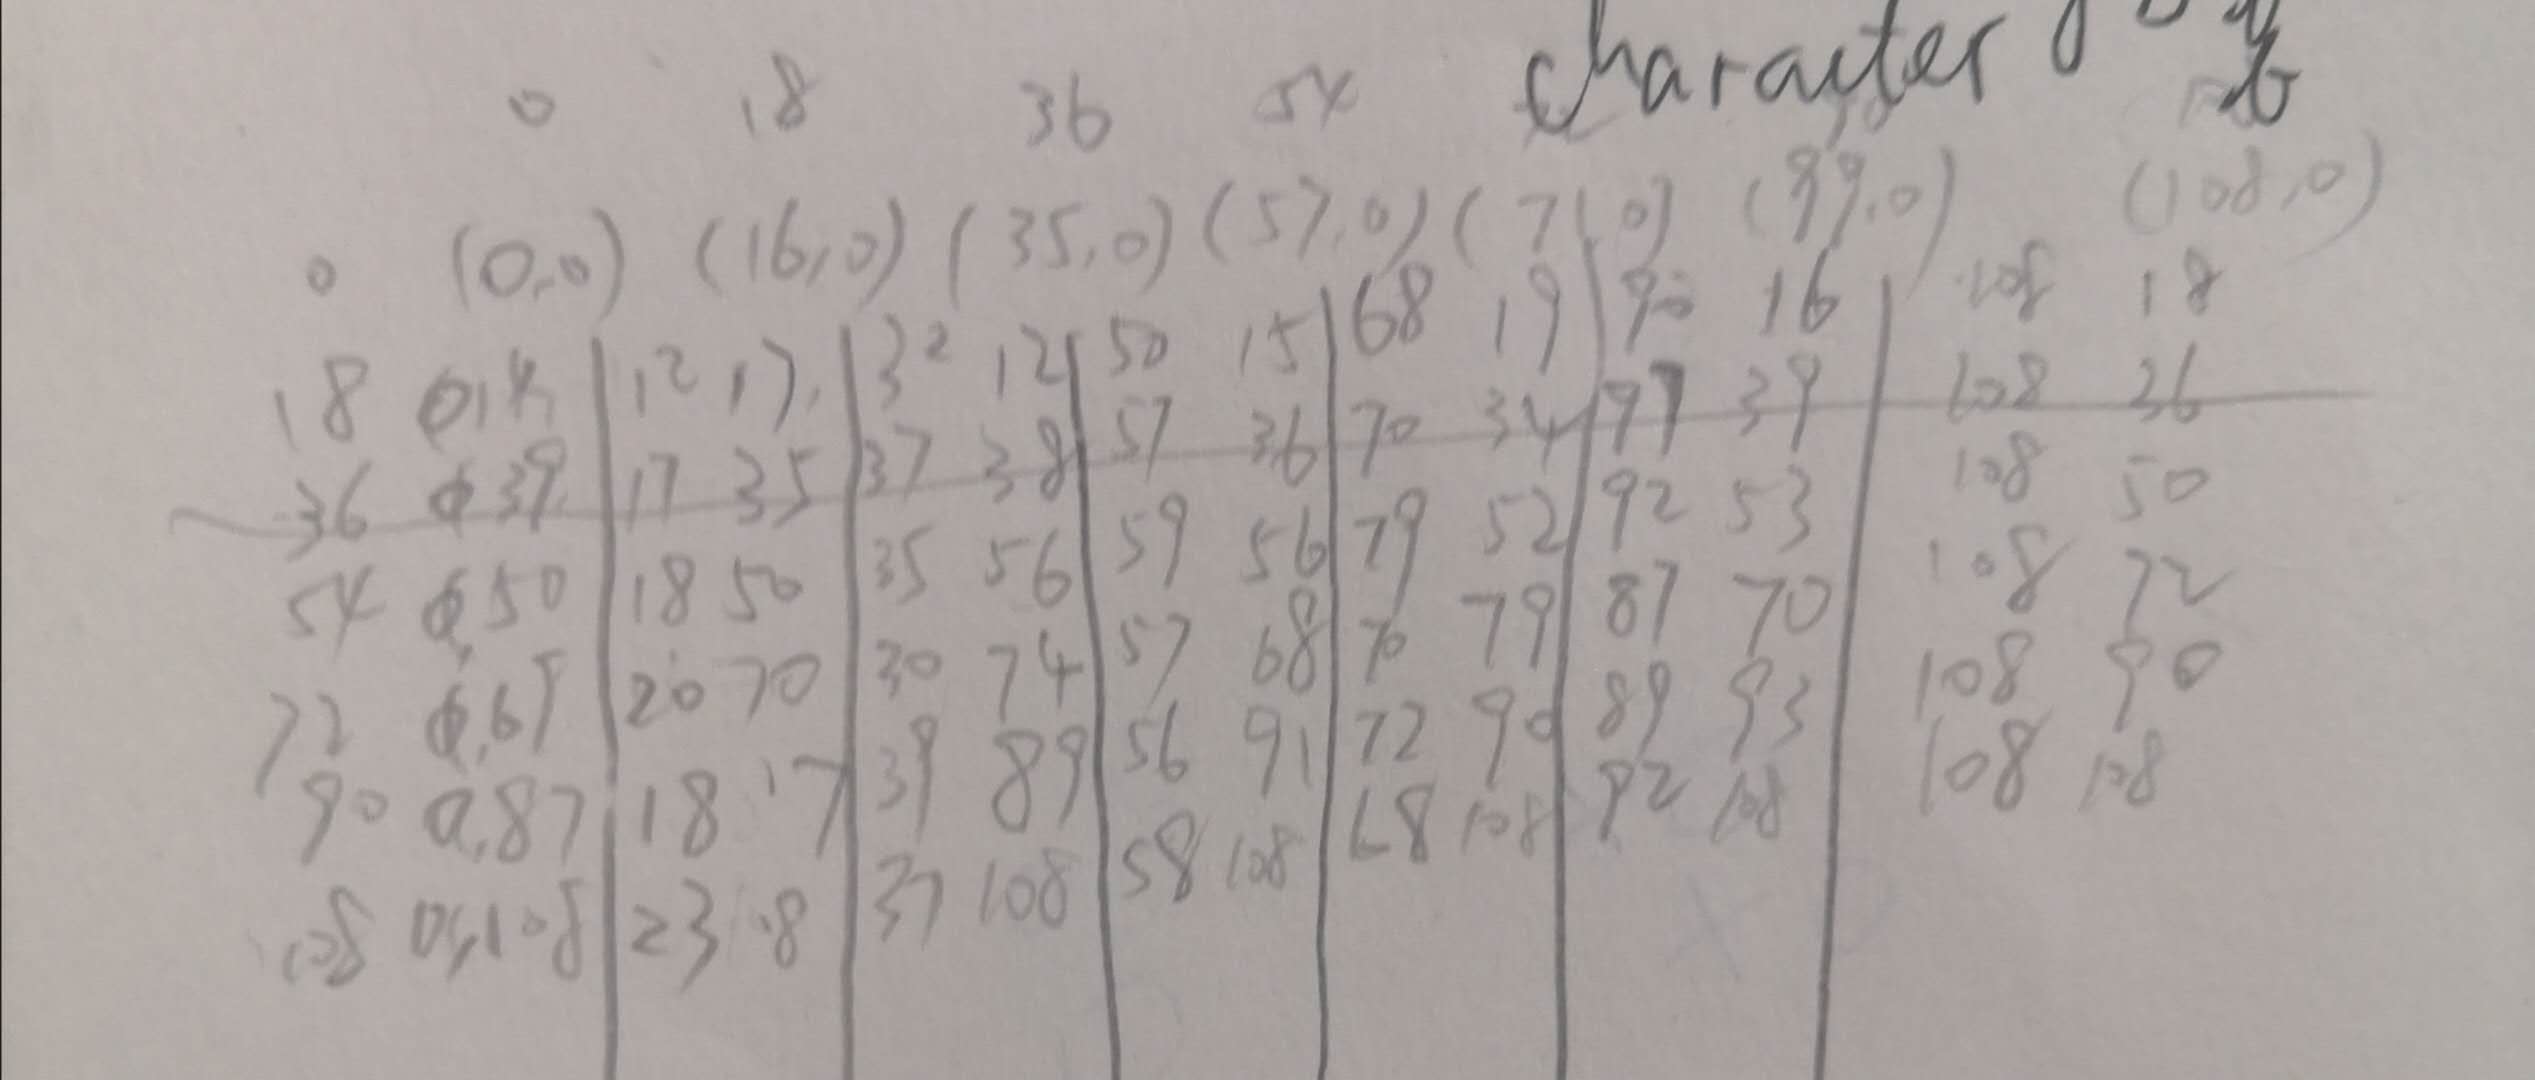 character
0 18 36 54
0 (0,0) (16,0) (35,0) (57,0) (71,0) (99,0) (108,0)
18 0,14 12 17 32 12 50 15 68 19 90 16 108 18
36 0 39 17 35 37 38 57 36 70 34 97 39 108 36
54 0,50 18 50 35 56 59 56 79 52 92 53 108 50
72 0,65 20 70 30 74 57 68 70 79 87 70 108 72
90 0,87 18 17 39 89 56 91 72 90 89 93 108 90
108 0,108 23 18 37 108 58 108 68 108 92 108 108 108